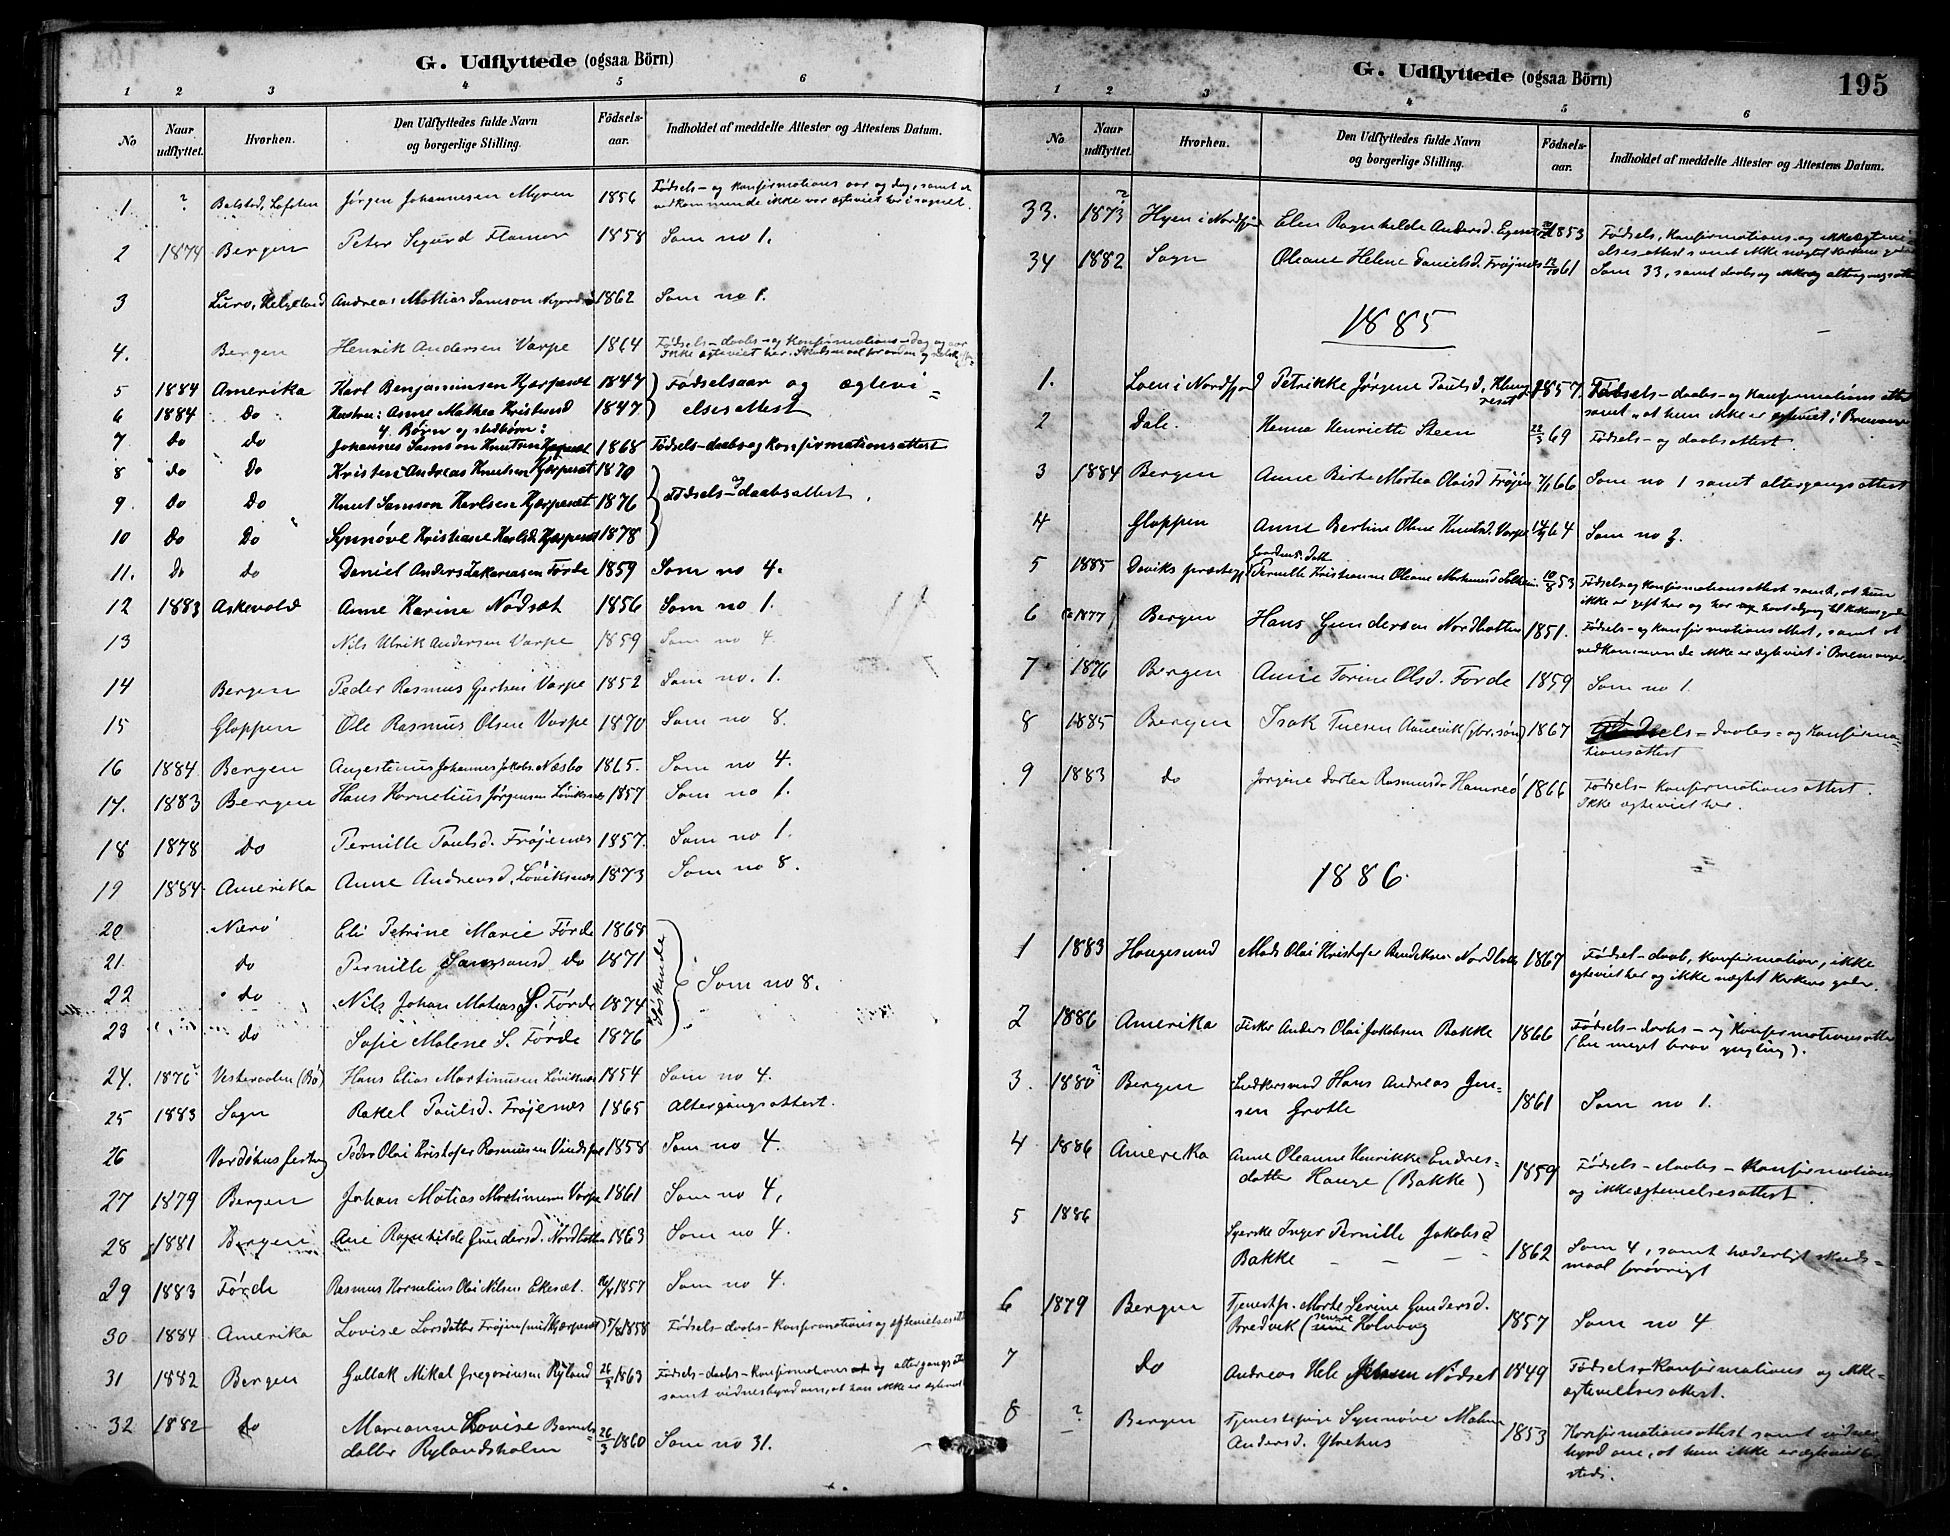 G. Udflyttede (ogsaa Börn)
1 2 3 4 5 6
No Naar udflyttet. Hvorhen. Den Udflyttedes fulde Navn og borgerlige Stilling. Födsels-aar. Indholdet af meddelte Attester og Attestens Datum.
1 ? Balstad, Lofoten Jørgen Johannesen Myren 1856 Fødsels- og Konfirmations aar og dag, samt at
vedkommende ikke var ægteviet her i sognet.
2 1874 Bergen Peter Sigurd 1858 Som no 1.
3 Lurø, Helgeland Andreas Mattias Samson 1862 Som no 1.
4. Bergen Henrik Andersen Varpe 1864 Fødsels- daabs- og Konfirmations- dag og aar
Ikke ægteviet her.
5 1884 Amerika Karl Benjaminsen Hjarpeset 1847 Fødselsaar og ægtevi-
6 1884 Do Anne Mathea 1847 elsesattest
4 Børn og stedbørn:
7 Do do Johannes Samson Knutsen 1868 Fødsels- daabs og Konfirmationsattest
8 do Do Kristen Andreas Knutsen 1870
9 Do Do Knut Samson Karlsen 1876 Fødsels- og daabsattest.
10 Do Do Synnøve Kristiane Karlsd. 1878
11. Do do Daniel Anders Zakariasen Førde 1859 Som no 4.
12 1883 Askevold Anne Karine Nødset 1856 Som no 1.
13 Nils Ulrik Andersen Varpe 1859 Som no 4
14 Bergen Peder Rasmus Varpe 1852 Som no. 1.
15 Gloppen Ole Rasmus Olsen Varpe 1870 Som no 8.
16 1884 Bergen Augustinus Johannes Jakobs. Næsbø 1865. Som no 4.
17. 1883 Bergen Hans Kornelius Jørgensen 1857 Som no 1.
18 1878 do Pernille Paulsd. Frøjenæs 1857. Som no 1.
19 1884 Amerika Anne Andreasd. 1873 Som no 8.
20 Nærø Eli Petrine Marie Førde 1868
21. do Pernille Samsonsd do 1871
22 do Nils Johan Matias S. Førde 1874 Søskende Som no 8.
23 do Sofie Malene S. Førde 1876
24. 1876? Vesteraalen (Bø) Hans Elias Martinusen 1854 Som no 4.
25 1883 Sogn Rakel Paulsd. Frøjenæs 1865 Altergangsattest.
26 Peder Olai Kristofer Rasmusen 1858 Som no 4.
27 1879 Bergen Johan Matias Martinusen Varpe 1861 Som no 4.
28 1881 Bergen Ane Ragnhilde Gundersd. 1863 Som no 4.
29 1883 Førde Rasmus Kornelius Olai Nilsen Ekesæt. 1857 Som no 4.
30 1884 Amerika Lovise Larsdatter 1858 Fødsels- daabs- konfirmations og
31 1882 Bergen Gullak Mikal Gregoriusen Ryland 26/2 1863 Fødsels- daabs- konfirmations og altergangs
samt vidnesbyrd om, at han ikke er
32 1882 do Marianne Lovise
datter Rylandsholm 26/3 1860 Som no 31.
G. Udflyttede (ogsaa Börn) 195
1 2 3 4 5 6
No Naar udflyttet. Hvorhen. Den Udflyttedes fulde Navn og borgerlige Stilling. Födsels-aar. Indholdet af meddelte Attester og Attestens Datum.
33. 1873? Hyen i Nordfjord Elen Ragnhilde Andersd. 1853 Fødsels, Konfirmations og
elsesattest samt ikke nægtet
34 1882 Sogn Oleane Helene Danielsd. Frøjnæs 61 Som 33, samt daabs og altergangsattest
1885
1. Loen i Nordfjord Petrikke Jørgine Paulsd. 1857 Fødsels- daabs- og Konfirmations attest
samt, at hun ikke er ægteviet i Bremanger
2 Dale. Hanna Henriette Steen 22/3 69 Fødsels- og daabsattest.
3 1884 Bergen Anne Birte Martea Olaisd. 66 Som no 1 samt altergangsattest
4 Gloppen Anne Bertine Olene Knutsd. Varpe 64 Som no 2.
5 1885 Daviks Pernille Kristianne Oleane 53 Fødsels og konfirmationsattest samt, at hun
ikke er gift her og har
6 1877 Bergen Hans Gundersen 1851. Fødsels- og Konfirmationsattest, samt at
vedkommende ikke er ægteviet i Bremanger.
7 1876 Bergen Anne Torine Olsd. Førde 1859 Som no 1.
8 1885 Bergen Isak Tuesen Aanevik 1867 Fødsels- daabs- og Konfirma-
tionsattest
9 1883 do Jørgine Dortea Rasmusd. 1866 Fødsels- Konfirmationsattest.
Ikke ægteviet her.
1886.
1 1883 Haugesund Mads Olai Kristofer 1867 Fødsel- daab, Konfirmation, ikke
ægteviet her og ikke nægtet kirkens goder.
2 1886 Amerika Anders Olai Jakobsen Bakke 1866 Fødsels- daabs- og Konfirmationsattest
(En meget brav yngling).
3. 1880? Bergen Hans Andreas Jen-
sen Grotle 1861 Som no 1.
4 1886 Amerika Anne Oleanne Henrikke Endres-
datter Hauge (Bakke) 1859 Fødsels- daabs- Konfirmations
og ikkeægtevielsesattest.
5 1886 Syerske Inger Pernille Jakobsd.
Bakke 1862 Som 4, samt hæderligt skuds-
maal forøvrigt
6 1879 Bergen Tjenestp. Marte Serine Gundersd.
Bredvik 1857 Som no 4
7 do Andreas Nødset 1849 Fødsels, Konfirmations og ikke-
ægtevielsesattest.
8 ? Bergen Tjenestepige Synnøve
Andersd. Ytrehus 1853 Konfirmationsattest samt vidnes-
byrd om, at hun ikke er ægteviet her-
steds.